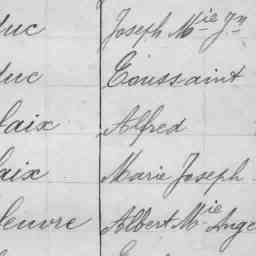 duc Joseph Mie Jn
duc Toussaint
laix Alfred
aix Marie Joseph
leuvre Albert Mie Ange